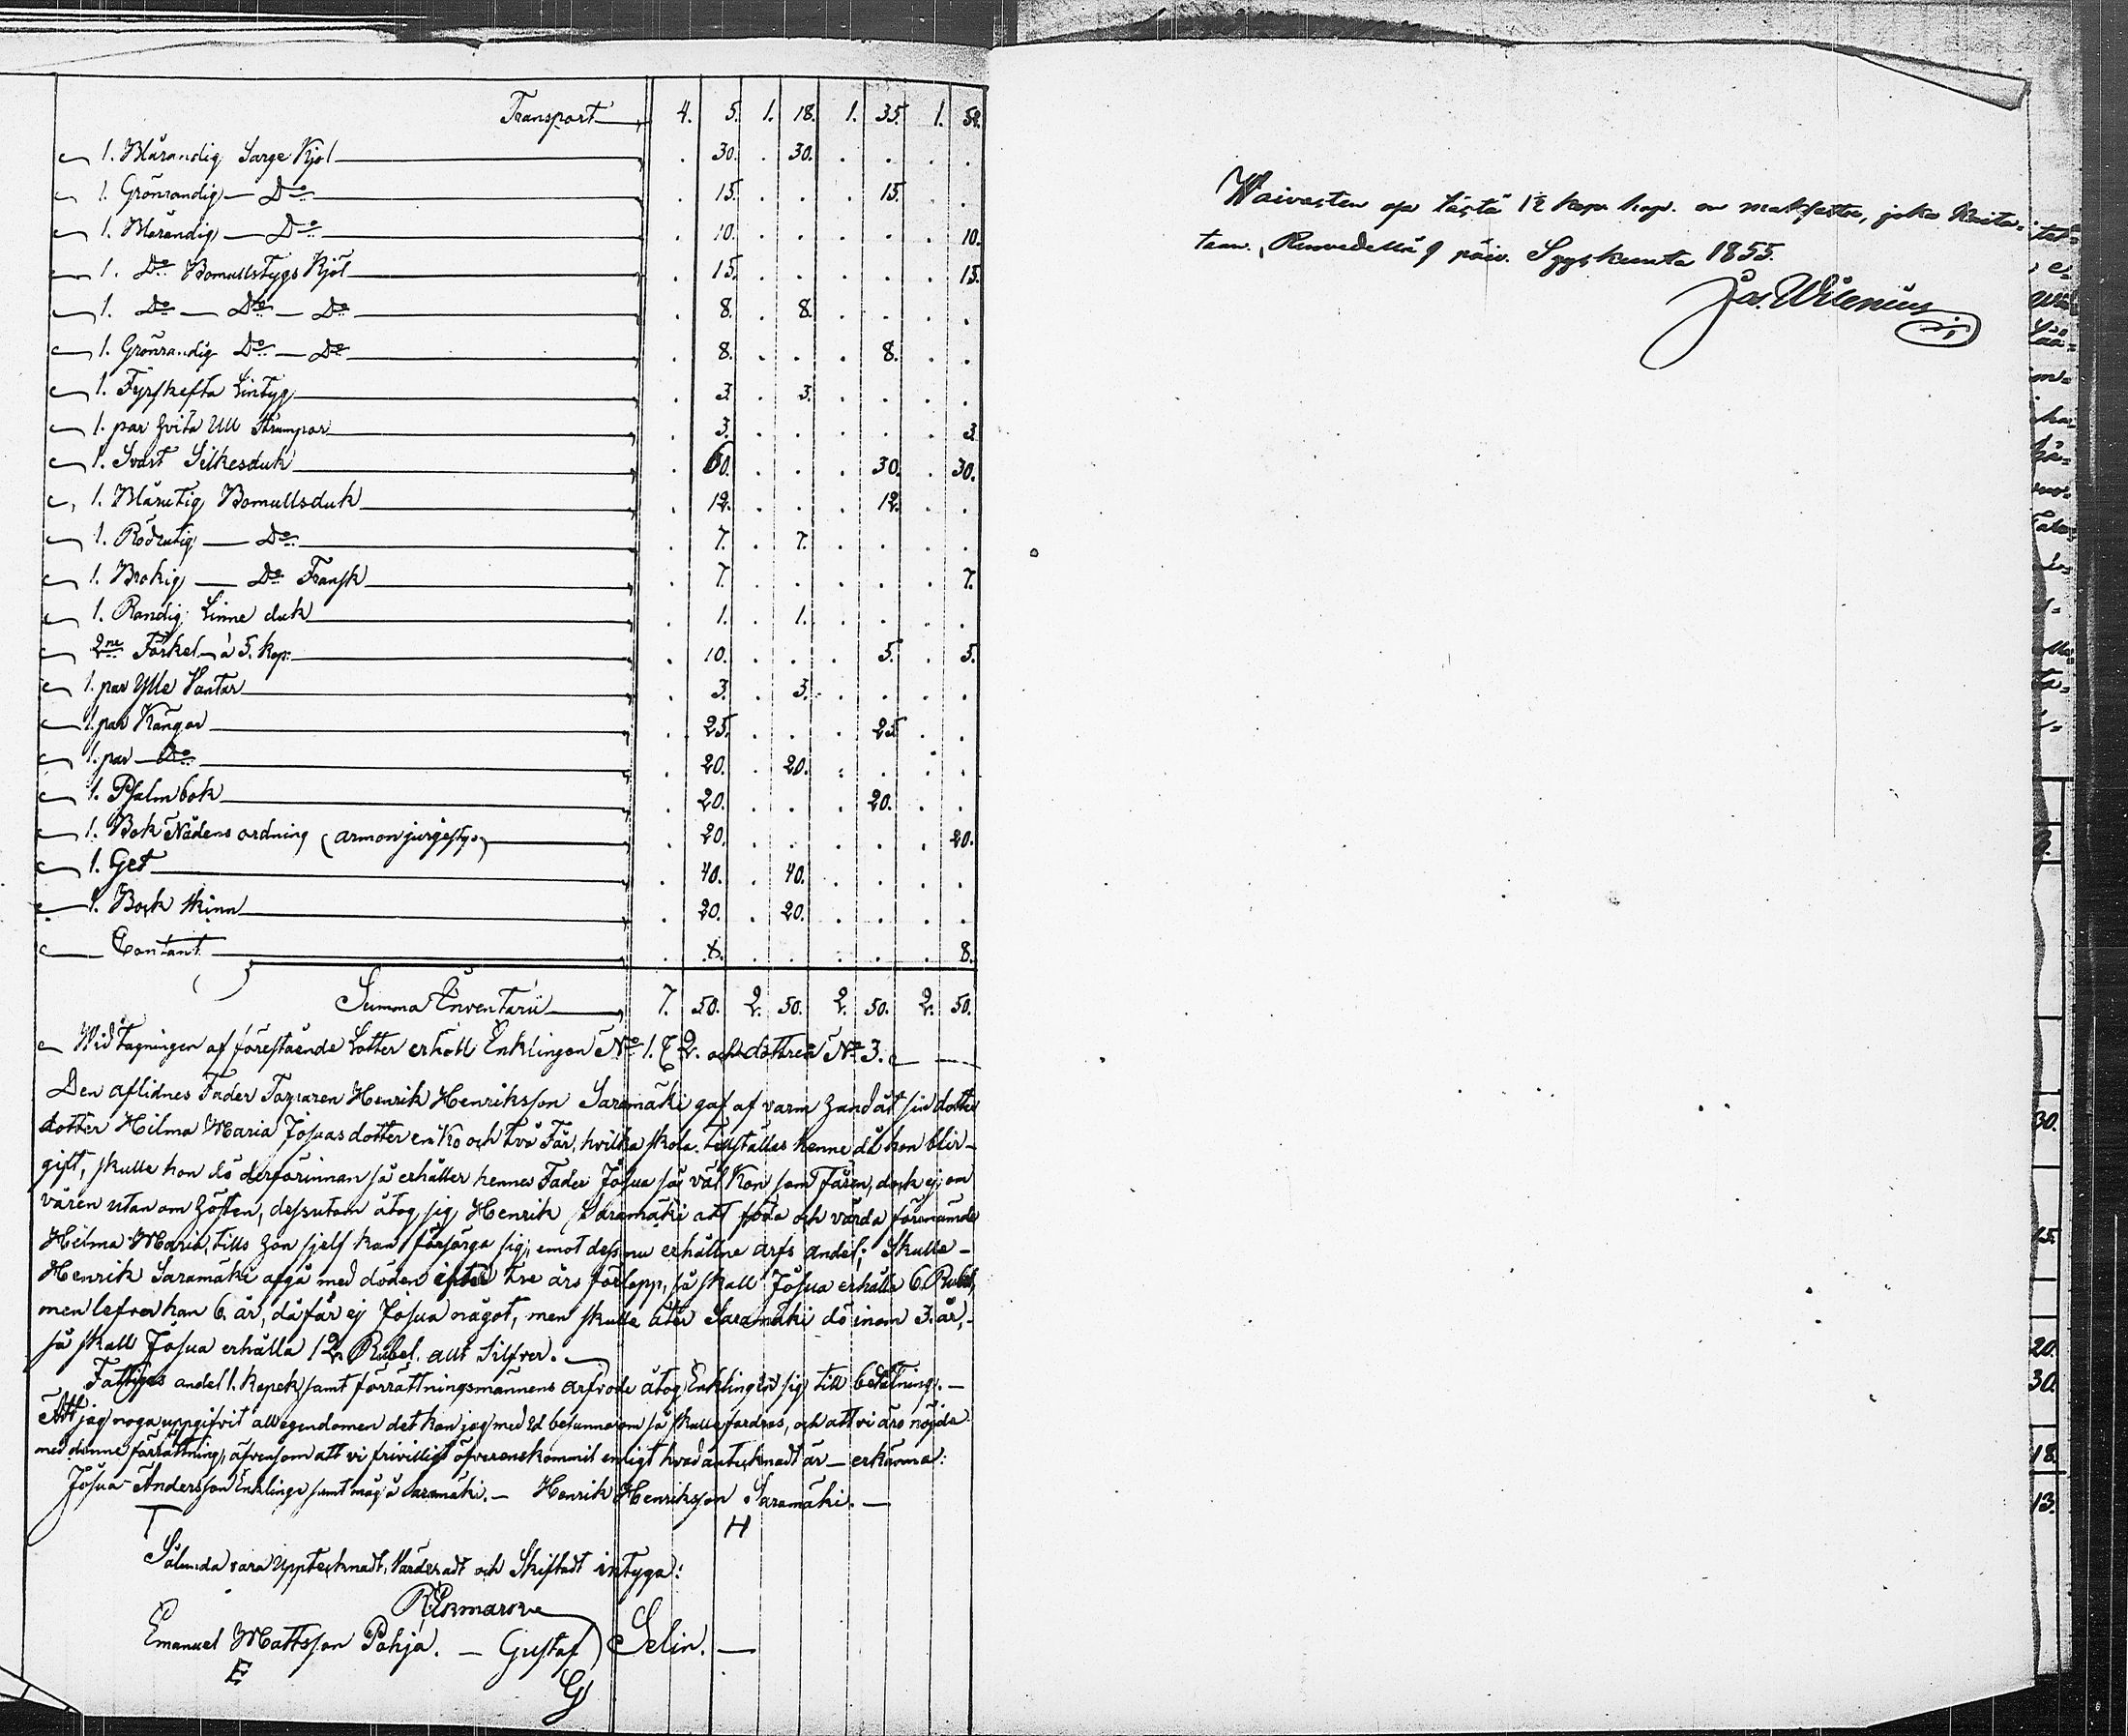 Transport 4. 5. 1. 18. 1. 35. 1. 52.
1. Blårandig Sarge Kjol . 30. . 30. . . . .
1. Grönrandig — Do . 15. . . . 15. . .
1. Blårandig — Do . 10. . . . . . 10.
1. Do Bomullstygs Kjol . 15. . . . . . 15.
1. Do — Do — Do . 8. . 8. . . . .
1. Grönrandig Do — Do . 8. . . . 8. . .
1. Fyrskefta Lintyg . 3. . 3. . . . .
1. par hvita Ull Strumpor . 3. . . . . . 3.
1. Svart Silkesduk . 60. . . . 30. . 30.
1. Blårutig Bomullsduk . 12. . . . 12. . .
1. Rödrutig — Do . 7. . 7. . . . .
1. Brokig — Do Fransk . 7. . . . . . 7.
1. Randig Linne duk . 1. . 1. . . . .
2ne Förkel à 5. kop. . 10. . . . 5. . 5.
1. par Ylle Vantar . 3. . 3. . . . .
1. par Kängor . 25. . . . 25 . .
1. par — Do . 20. . 20. . . . .
1. Psalmbok . 20. . . . 20. . .
1. Bok Nådens ordning (armon jurjestys) . 20. . . . . . 20.
1. Get . 40. . 40. . . . .
1. Bock skinn . 20. . 20. . . . .
Contant . 8. . . . . . 8.
Summa Inventarii 7. 50. 2. 50. 2. 50. 2. 50.
Wid tagningen af förestående Lotter erhöll Enklingen No 1. & 2. och dottren No 3.
Den aflidnes Fader Torparen Henrik Henriksson Saramäki gaf af varm hand åt sin dotter
dotter Hilma Maria Josuas dotter en Ko och två Får, hvilka skola tillställas henne då hon blir
gift, skulle hon dö derförinnan så erhåller hennes Fader Josua så väl Kon som Fåren, dock ej om
våren utan om hösten, dessutom åtog sig Henrik Saramäki att föda och vårda förenämde
Hilma Maria, tills hon sjelf kan försörga sig, emot dess nu erhållne arfs andel; Skulle
Henrik Saramäki afgå med döden efter tre års förlopp, så skall Josua erhålla 6. Rubel,
men lefver han 6. år, då får ej Josua något, men skulle åter Saramäki dö inom 3. år,
så skall Josua erhålla 12. Rubel. allt Silfver.
Fattiges andel 1. Kopek, samt förrättningsmännens arfvode åtog Enklingen sig till betalning. —
Att jag noga uppgifvit all egendomen det kan jag med Ed besanna om så skulle fordras, och att vi äro nöjde
med denne förrättning, äfvensom att vi frivilligt öfverenskommit enligt hvad antecknadt är — erkänna:
Josua Andersson Enklinge samt måg å Saramäki. — Henrik Henriksson Saramäki. —
H
Sålunda vara Upptecknadt, Värderadt och Skiftadt intyga:
R. Ekmark
Emanuel Mattsson Pohja. — Gustaf Selin. —
E G
Waivasten osa tästä 12 kop. hop. on maksettu, joka
Syyskuuta 1855.
Jos. Wilenius
30.
15.
20.
30.
18.
13.